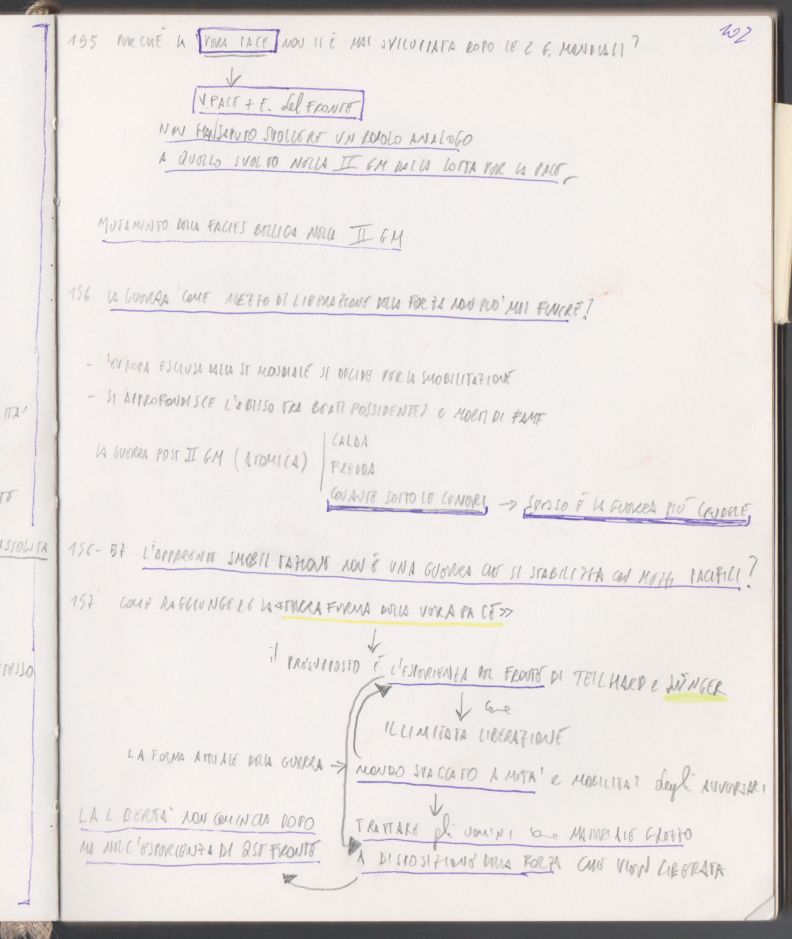 102
155 PERCHÉ LA VERA PACE NON SI È MAI SVILUPPATA DOPO LE 2 G. MONDIALI?
V.PACE + E. del FRONTE
NON HAN SAPUTO SVOLGERE UN RUOLO ANALOGO
A QUELLO SVOLTO NELLA II GM DALLA LOTTA PER LA PACE
MUTAMENTO DELLA FACIES BELLICA NELLA II GM
156 LA GUERRA COME MEZZO DI LIBERAZIONE DELLA FORZA NON PUÒ MAI FINIRE?
- L'EUROPA ESCLUSA DALLA ST. MONDIALE SI DECIDE PER LA SMOBILITAZIONE
- SI APPROFONDISCE L'ABISSO TRA BEATI POSSIDENTES E MORTI DI FAME
LA GUERRA POST II GM (ATOMICA)
CALDA
FREDDA
COVANTE SOTTO LE CENERI → SPESSO È LA GUERRA PIÙ CRUDELE
156-57 L'APPARENTE SMOBILITAZIONE NON È UNA GUERRA CHE SI STABILIZZA CON MEZZI PACIFICI?
157 COME RAGGIUNGERE LA «TERRAFERMA DELLA VERA PACE»
il PRESUPPOSTO È L'ESPERIENZA DEL FRONTE DI TEILHARD e JÜNGER
come
ILLIMITATA LIBERAZIONE
LA FORMA ATTUALE DELLA GUERRA → MONDO SPACCATO A METÀ e MOBILITÀ degli AVVERSARI
TRATTARE gli UOMINI come MATERIALE GREZZO
A DISPOSIZIONE DELLA FORZA CHE VIEN LIBERATA
LA LIBERTÀ NON COMINCIA DOPO
MA NELL'ESPERIENZA DI QST FRONTE
ITÀ
SSOLUTA